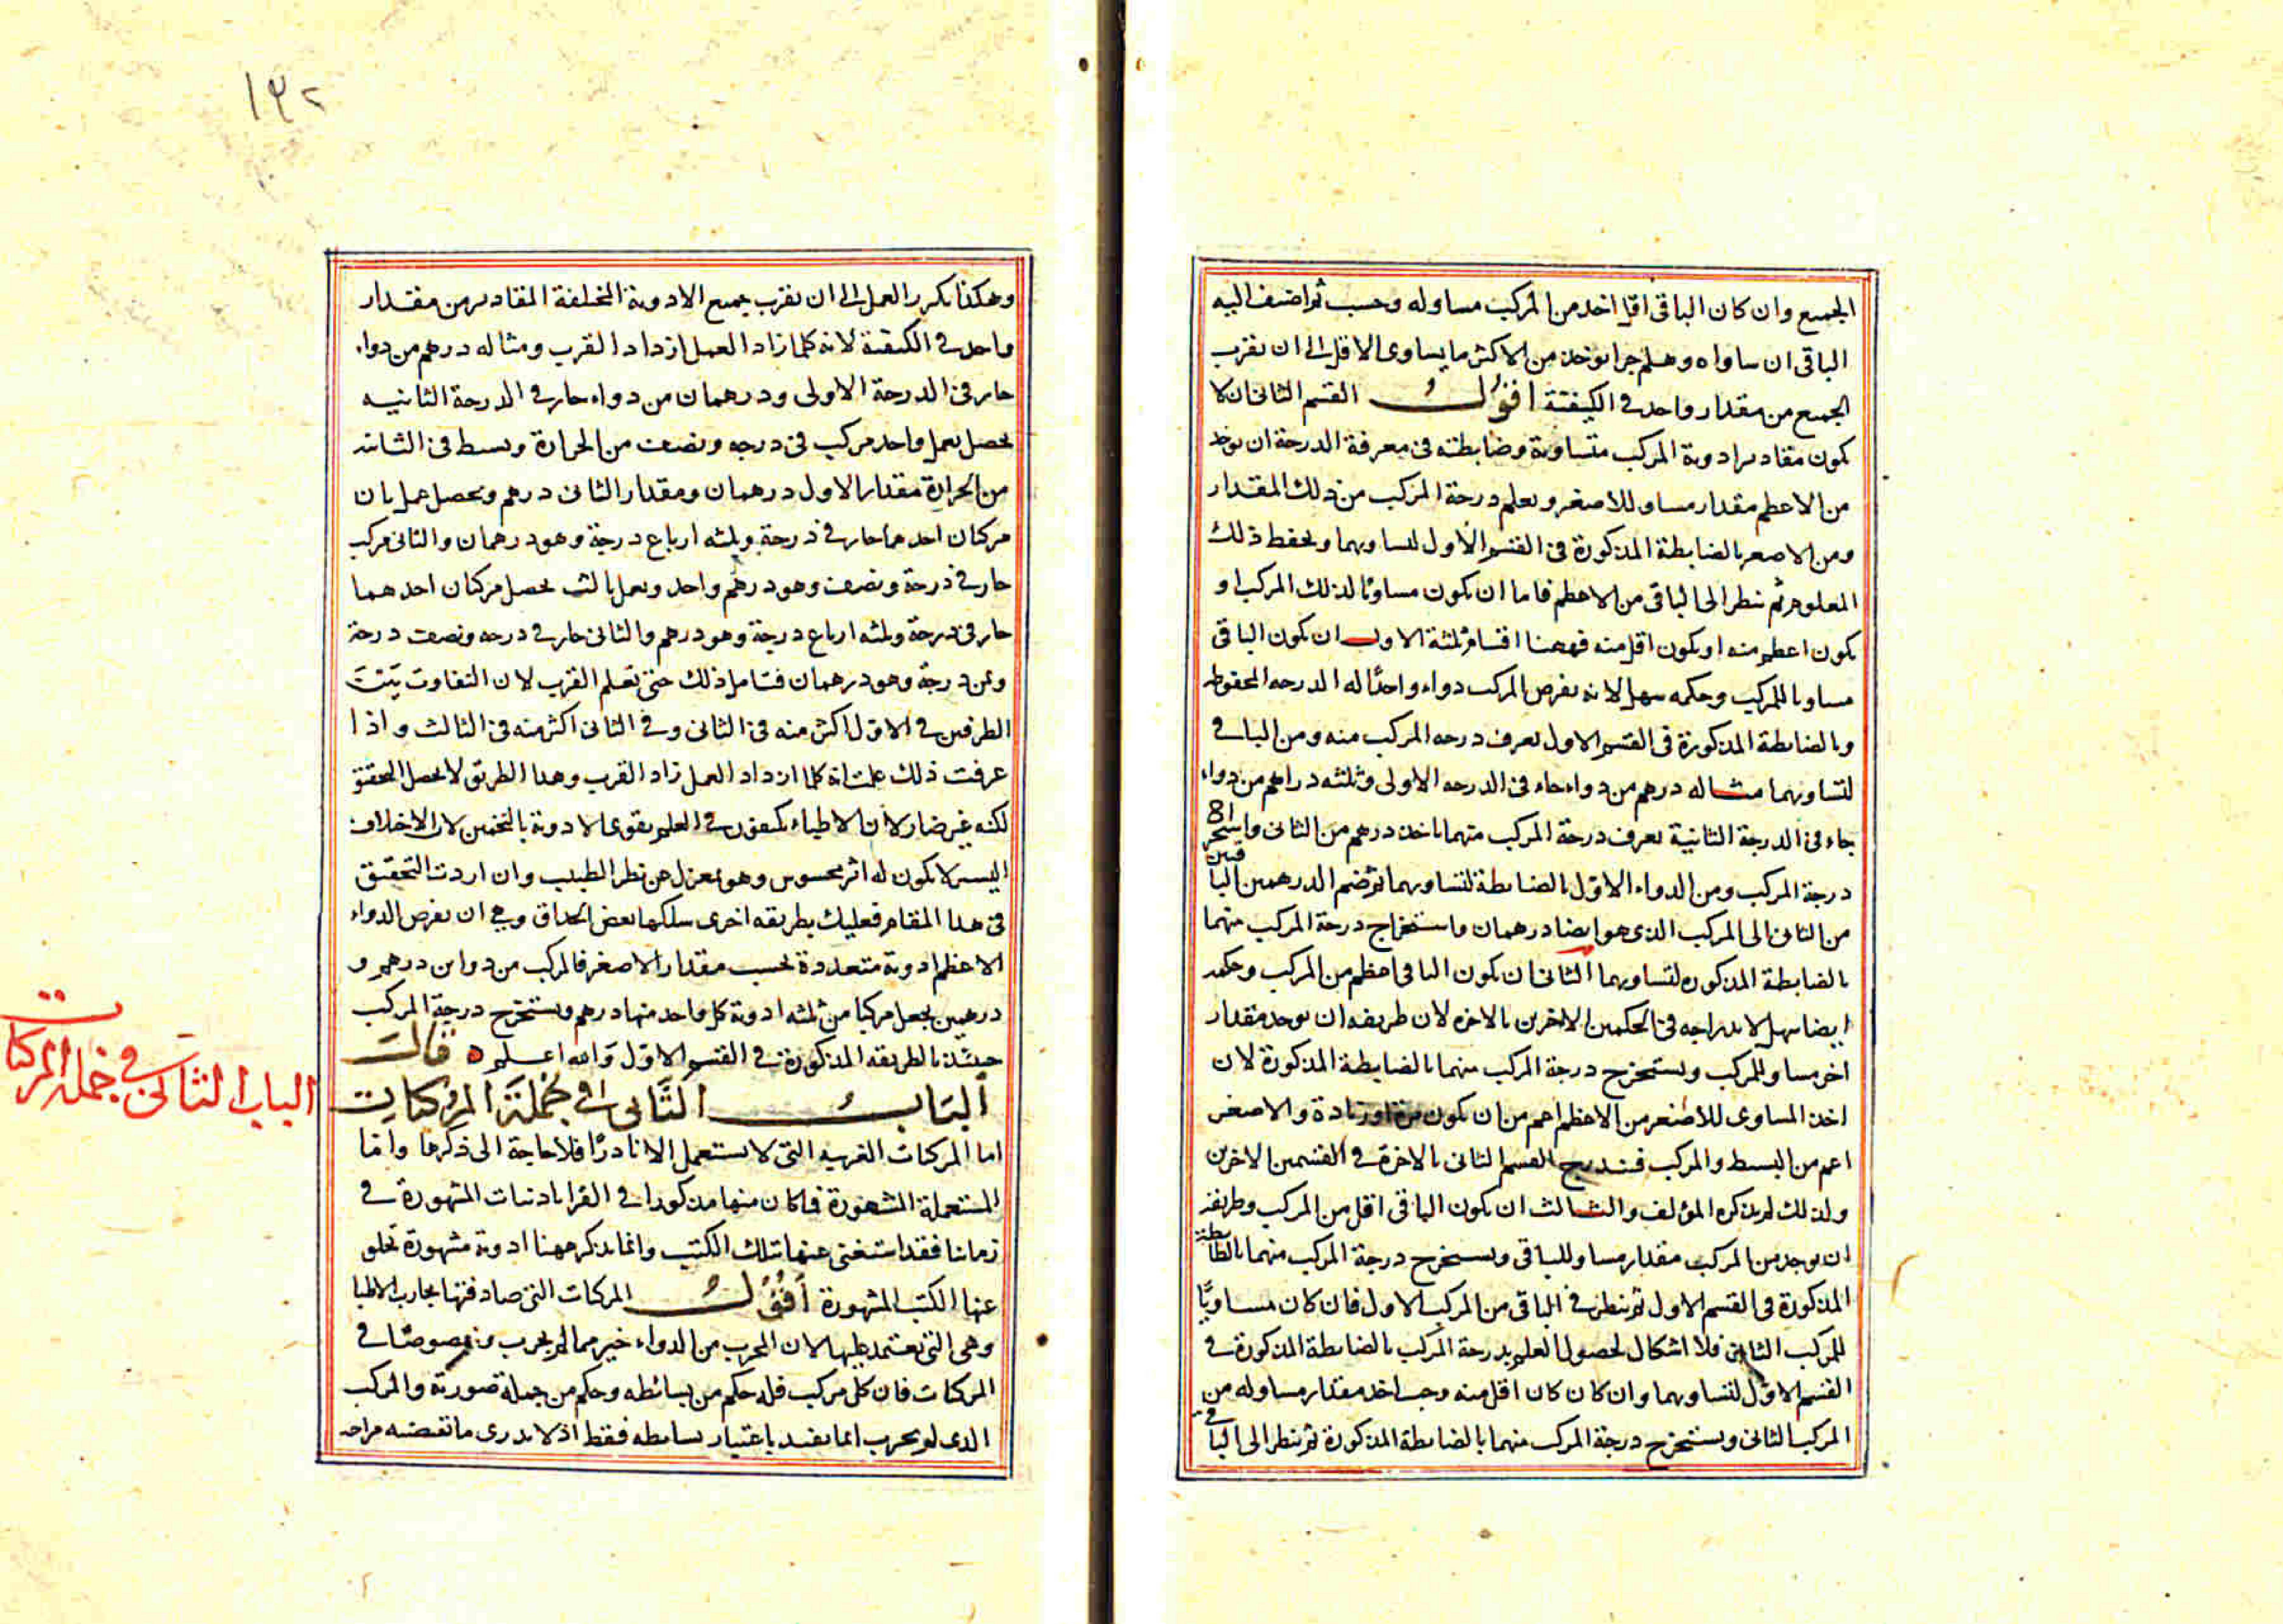 الجميع وان كان الباقى اقل اخذ من المركب مساو له وحسب ثم اضف اليه
الباقى ان ساواه وهلم جرا يوخذ من الاكثر ما يساوى الاقل الى ان يقرب
الجميع من مقدار واحد فى الكيفية اقول القسم الثانى ان لا
يكون مقادير ادوية المركب متساوية وضابطته فى معرفة الدرجة ان يوخذ
من الاعظم مقدار مساو للاصغر ويعلم درجة المركب من ذلك المقدار
ومن الاصغر بالضابطة المذكورة فى القسم الاول لتساويهما ويحفظ ذلك
المعلوم ثم ينظر الى الباقى من الاعظم فاما ان يكون مساويا لذلك المركب او
يكون اعظم منه او يكون اقل منه فههنا اقسام ثلثة الاول ان يكون الباقى
مساويا للمركب وحكمه سهل لانه يفرض المركب دواء واحدا له الدرجه المحفوظه
وبالضابطة المذكورة فى القسم الاول يعرف درجه المركب منه ومن الباقى
لتساويهما مثاله درهم من دواء حار فى الدرجه الاولى وثلثه دراهم من دواء
حار فى الدرجة الثانية يعرف درجة المركب منهما باخذ درهم من الثانى واستخراج
درجة المركب ومن الدواء الاول بالضابطة لتساويهما ثم ضم الدرهمين الباقيين
من الثانى الى المركب الذى هو ايضا درهمان واستخراج درجة المركب منهما
بالضابطة المذكوره لتساويهما الثانى ان يكون الباقى اعظم من المركب وحكمه
ايضا سهل لاندراجه فى الحكمين الاخرين بالاخره لان طريقه ان يوخذ مقدار
اخر مساو للمركب ويستخرج درجة المركب منهما بالضابطة المذكورة لان
اخذ المساوى للاصغر من الاعظم اعم من ان يكون مرة او زيادة والاصغر
اعم من البسيط والمركب فيندرج القسم الثانى بالاخرة فى القسمين الاخرين
ولذلك لم يذكره المؤلف والثالث ان يكون الباقى اقل من المركب وطريقه
ان يوخذ من المركب مقدار مساو للباقى ويستخرج درجة المركب منهما بالضابطة
المذكورة فى القسم الاول ثم ينظر فى الباقى من المركب الاول فان كان مساويًا
للمركب الثانى فلا اشكال لحصول العلم بدرجة المركب بالضابطة المذكورة فى
القسم الاول لتساويهما وان كان كان اقل منه وجب اخذ مقدار مساو له من
المركب الثانى ويستخرج درجة المركب منهما بالضابطة المذكورة ثم ينظر الى الباقى
١٣٢
وهكذا يكرر العمل الى ان يقرب جميع الادوية المختلفة المقادير من مقدار
واحد فى الكيفية لانه كلما زاد العمل ازداد القرب ومثاله درهم من دواء
حار فى الدرجة الاولى ودرهمان من دواء حار فى الدرجة الثانيه
يحصل بعمل واحد مركب فى درجه ونصف من الحرارة وبسيط فى الثانيه
من الحرارة مقدار الاول درهمان ومقدار الثانى درهم ويحصل بعمل ثان
مركبان احدهما حار فى درجة وثلثه ارباع درجة وهو درهمان والثانى مركب
حار فى درجة ونصف وهو درهم واحد وبعمل ثالث يحصل مركبان احدهما
حار فى درجة وثلثه ارباع درجة وهو درهم والثانى حار فى درجه ونصف درجة
وثمن درجة وهو درهمان فتامل ذلك حتى تعلم القرب لان التفاوت بين
الطرفين فى الاول اكثر منه فى الثانى وفى الثانى اكثر منه فى الثالث واذا
عرفت ذلك علمت انه كلما ازداد العمل زاد القرب وهذا الطريق لا يحصل التحقيق
لكنه غير ضار لان الاطباء يكتفون فى العلم بقوى الادوية بالتخمين لان الاختلاف
اليسير لا يكون له اثر محسوس وهو بمعزل عن نظر الطبيب وان اردت التحقيق
فى هذا المقام فعليك بطريقه اخرى سلكها بعض الحذاق وهى ان يفرض الدواء
الاعظم ادوية متعددة بحسب مقدار الاصغر فالمركب من دواين درهم و
درهمين يجعل مركبا من ثلثه ادوية كل واحد منها درهم ويستخرج درجة المركب
حينئذ بالطريقه المذكورة فى القسم الاول والله اعلم قال
الباب الثانى فى جملة المركبات
الباب الثانى فى جملة المركبات
اما المركبات الغريبه التى لا تستعمل الا نادرًا فلا حاجة الى ذكرها واما
المستعملة المشهورة فما كان منها مذكورا فى القراباذنيات المشهورة فى
زماننا فقد استغنى عنها بتلك الكتب وانما نذكر ههنا ادوية مشهورة تخلو
عنها الكتب المشهورة اقول المركبات التى صادفتها تجارب الاطبا
وهى التى يعتمد عليها لان المجرب من الدواء خير مما لم يجرب وخصوصًا فى
المركبات فان كل مركب فله حكم من بسائطه وحكم من جملة صورته والمركب
الذى لم يجرب انما يفيد باعتبار بسائطه فقط اذ لا يدرى ما تقتضيه مزاجه